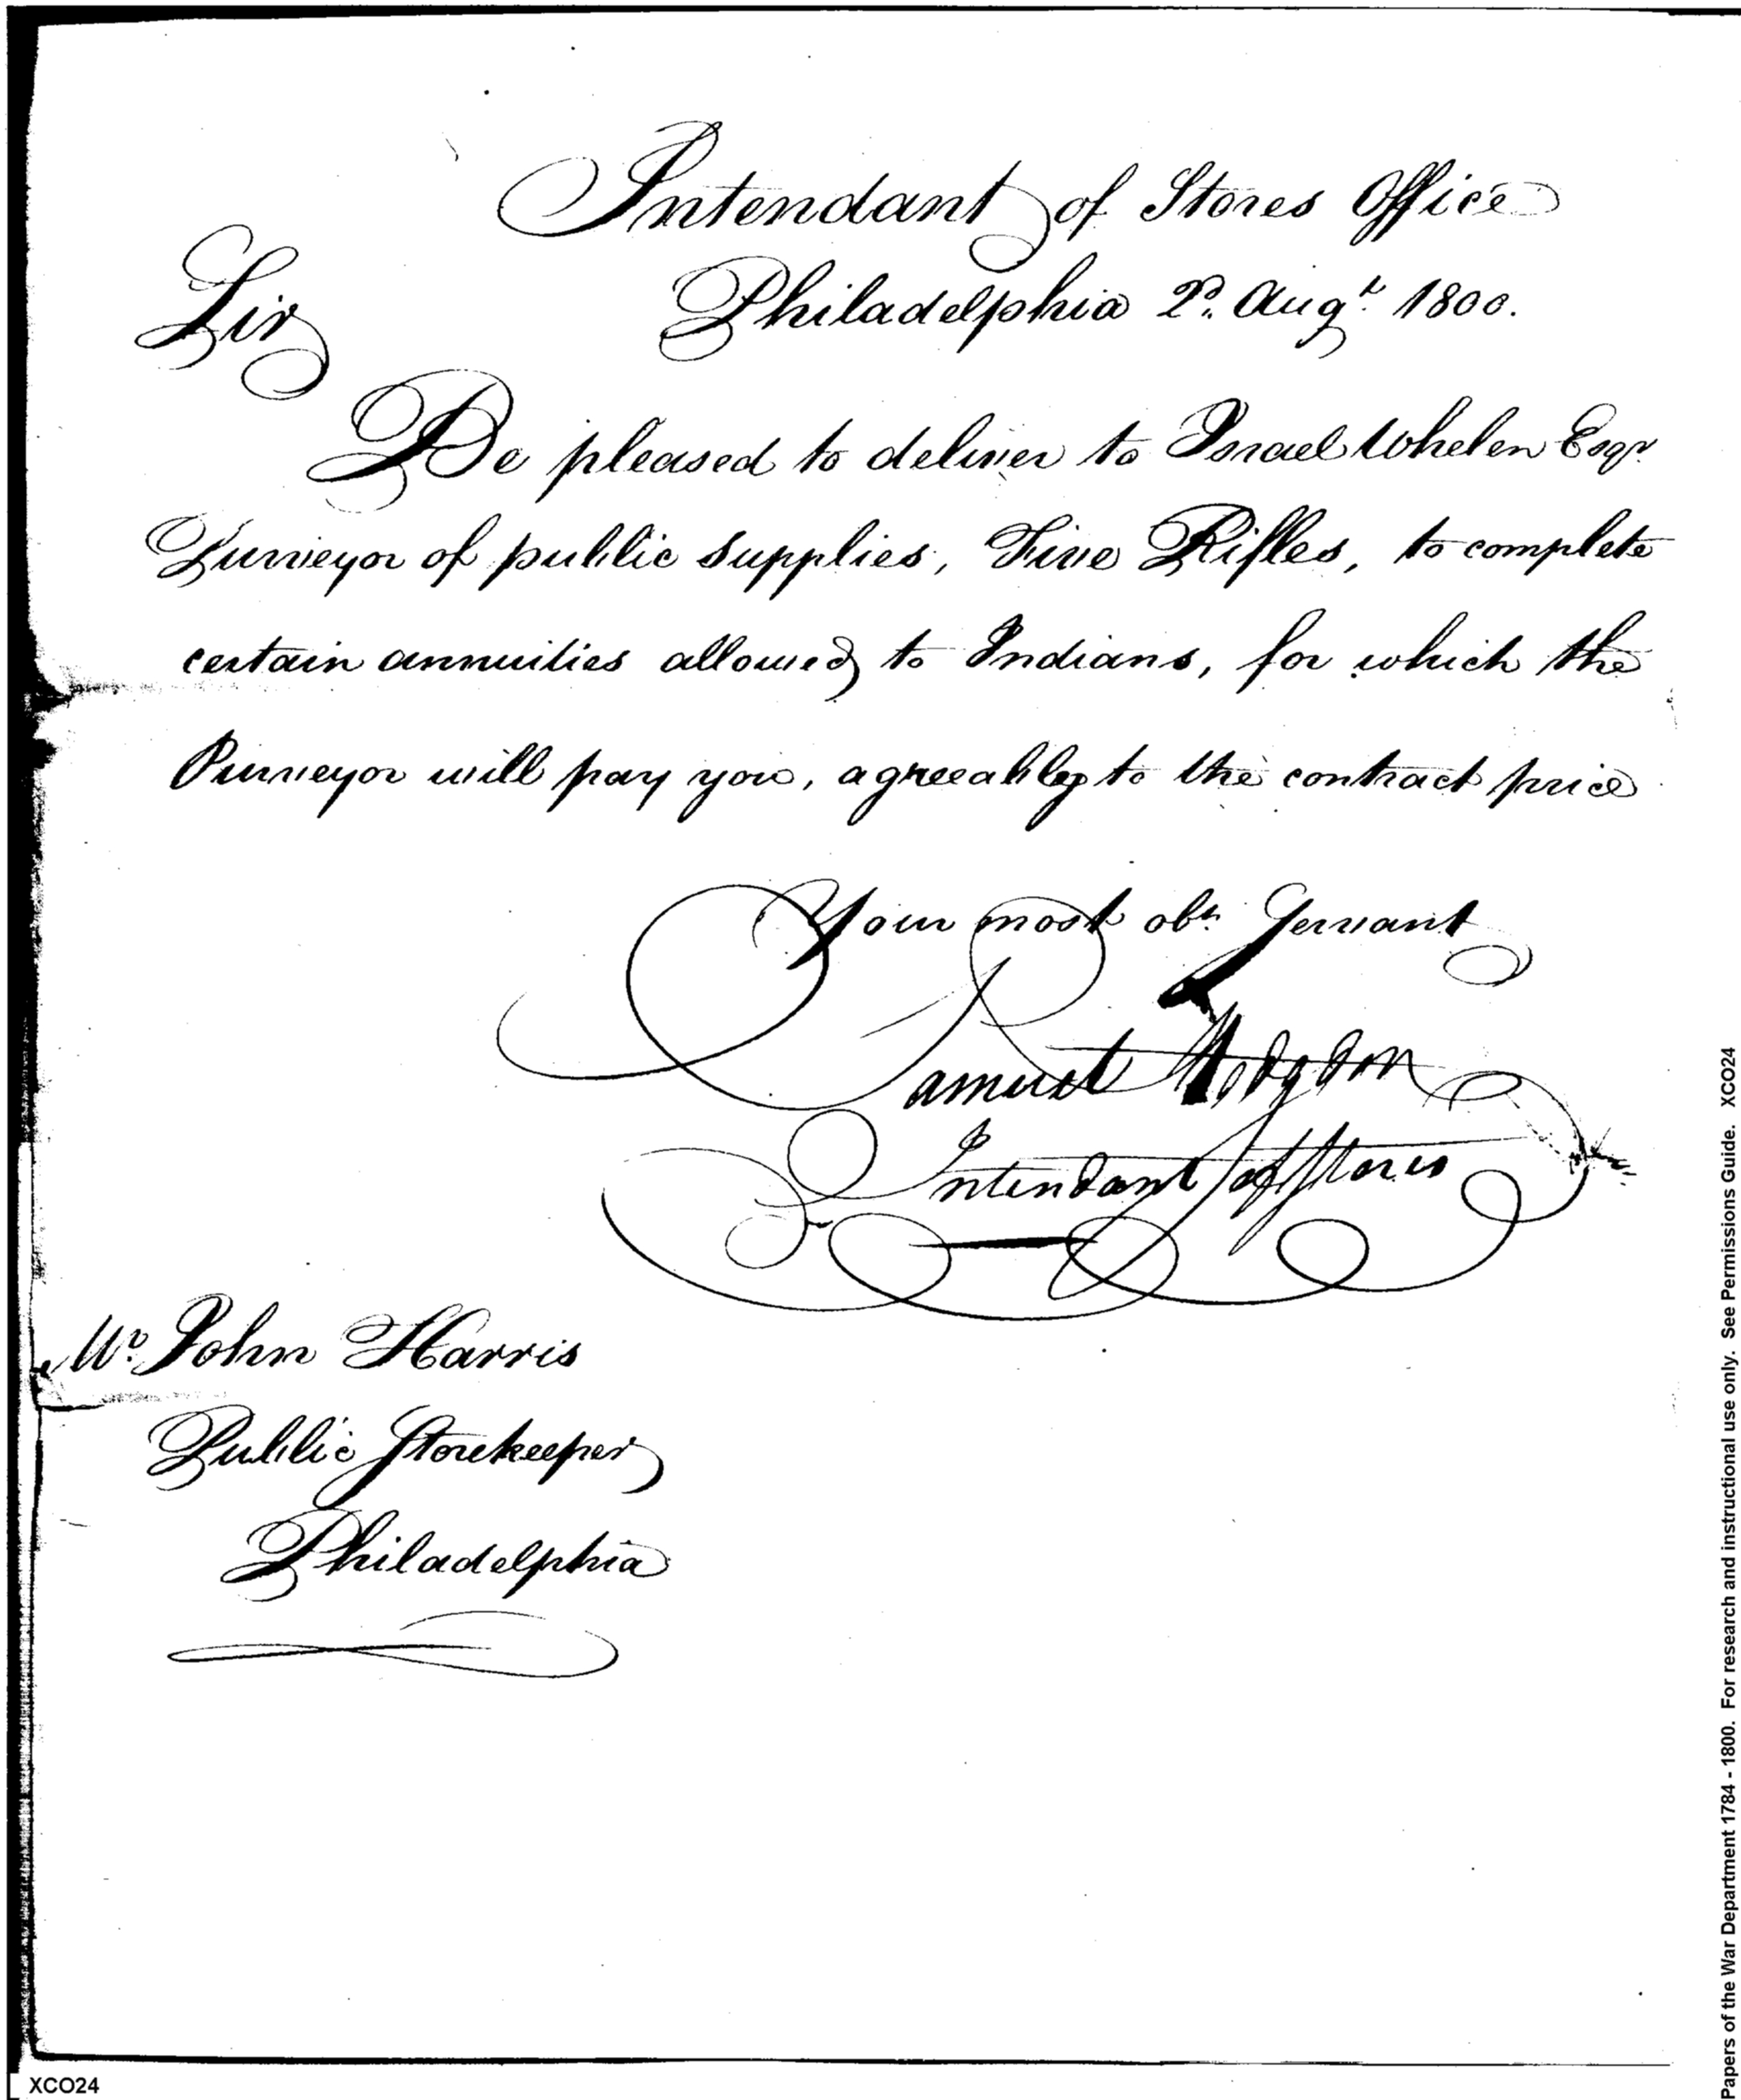 Intendant of Stores Office
Philadelphia 2d. Augt. 1800.
Sir
Be pleased to deliver to Israel Whelen Esqr.
Purveyor of public supplies, Five Rifles, to complete
certain annuities allowed to Indians, for which the
Purveyor will pay you, agreeably to the contract price
Your most obt. Servant
Samuel Hodgdon
Intendant of Stores
Mr. John Harris
Public Storekeeper
Philadelphia
XCO24
Papers of the War Department 1784 - 1800. For research and instructional use only. See Permissions Guide. XCO24